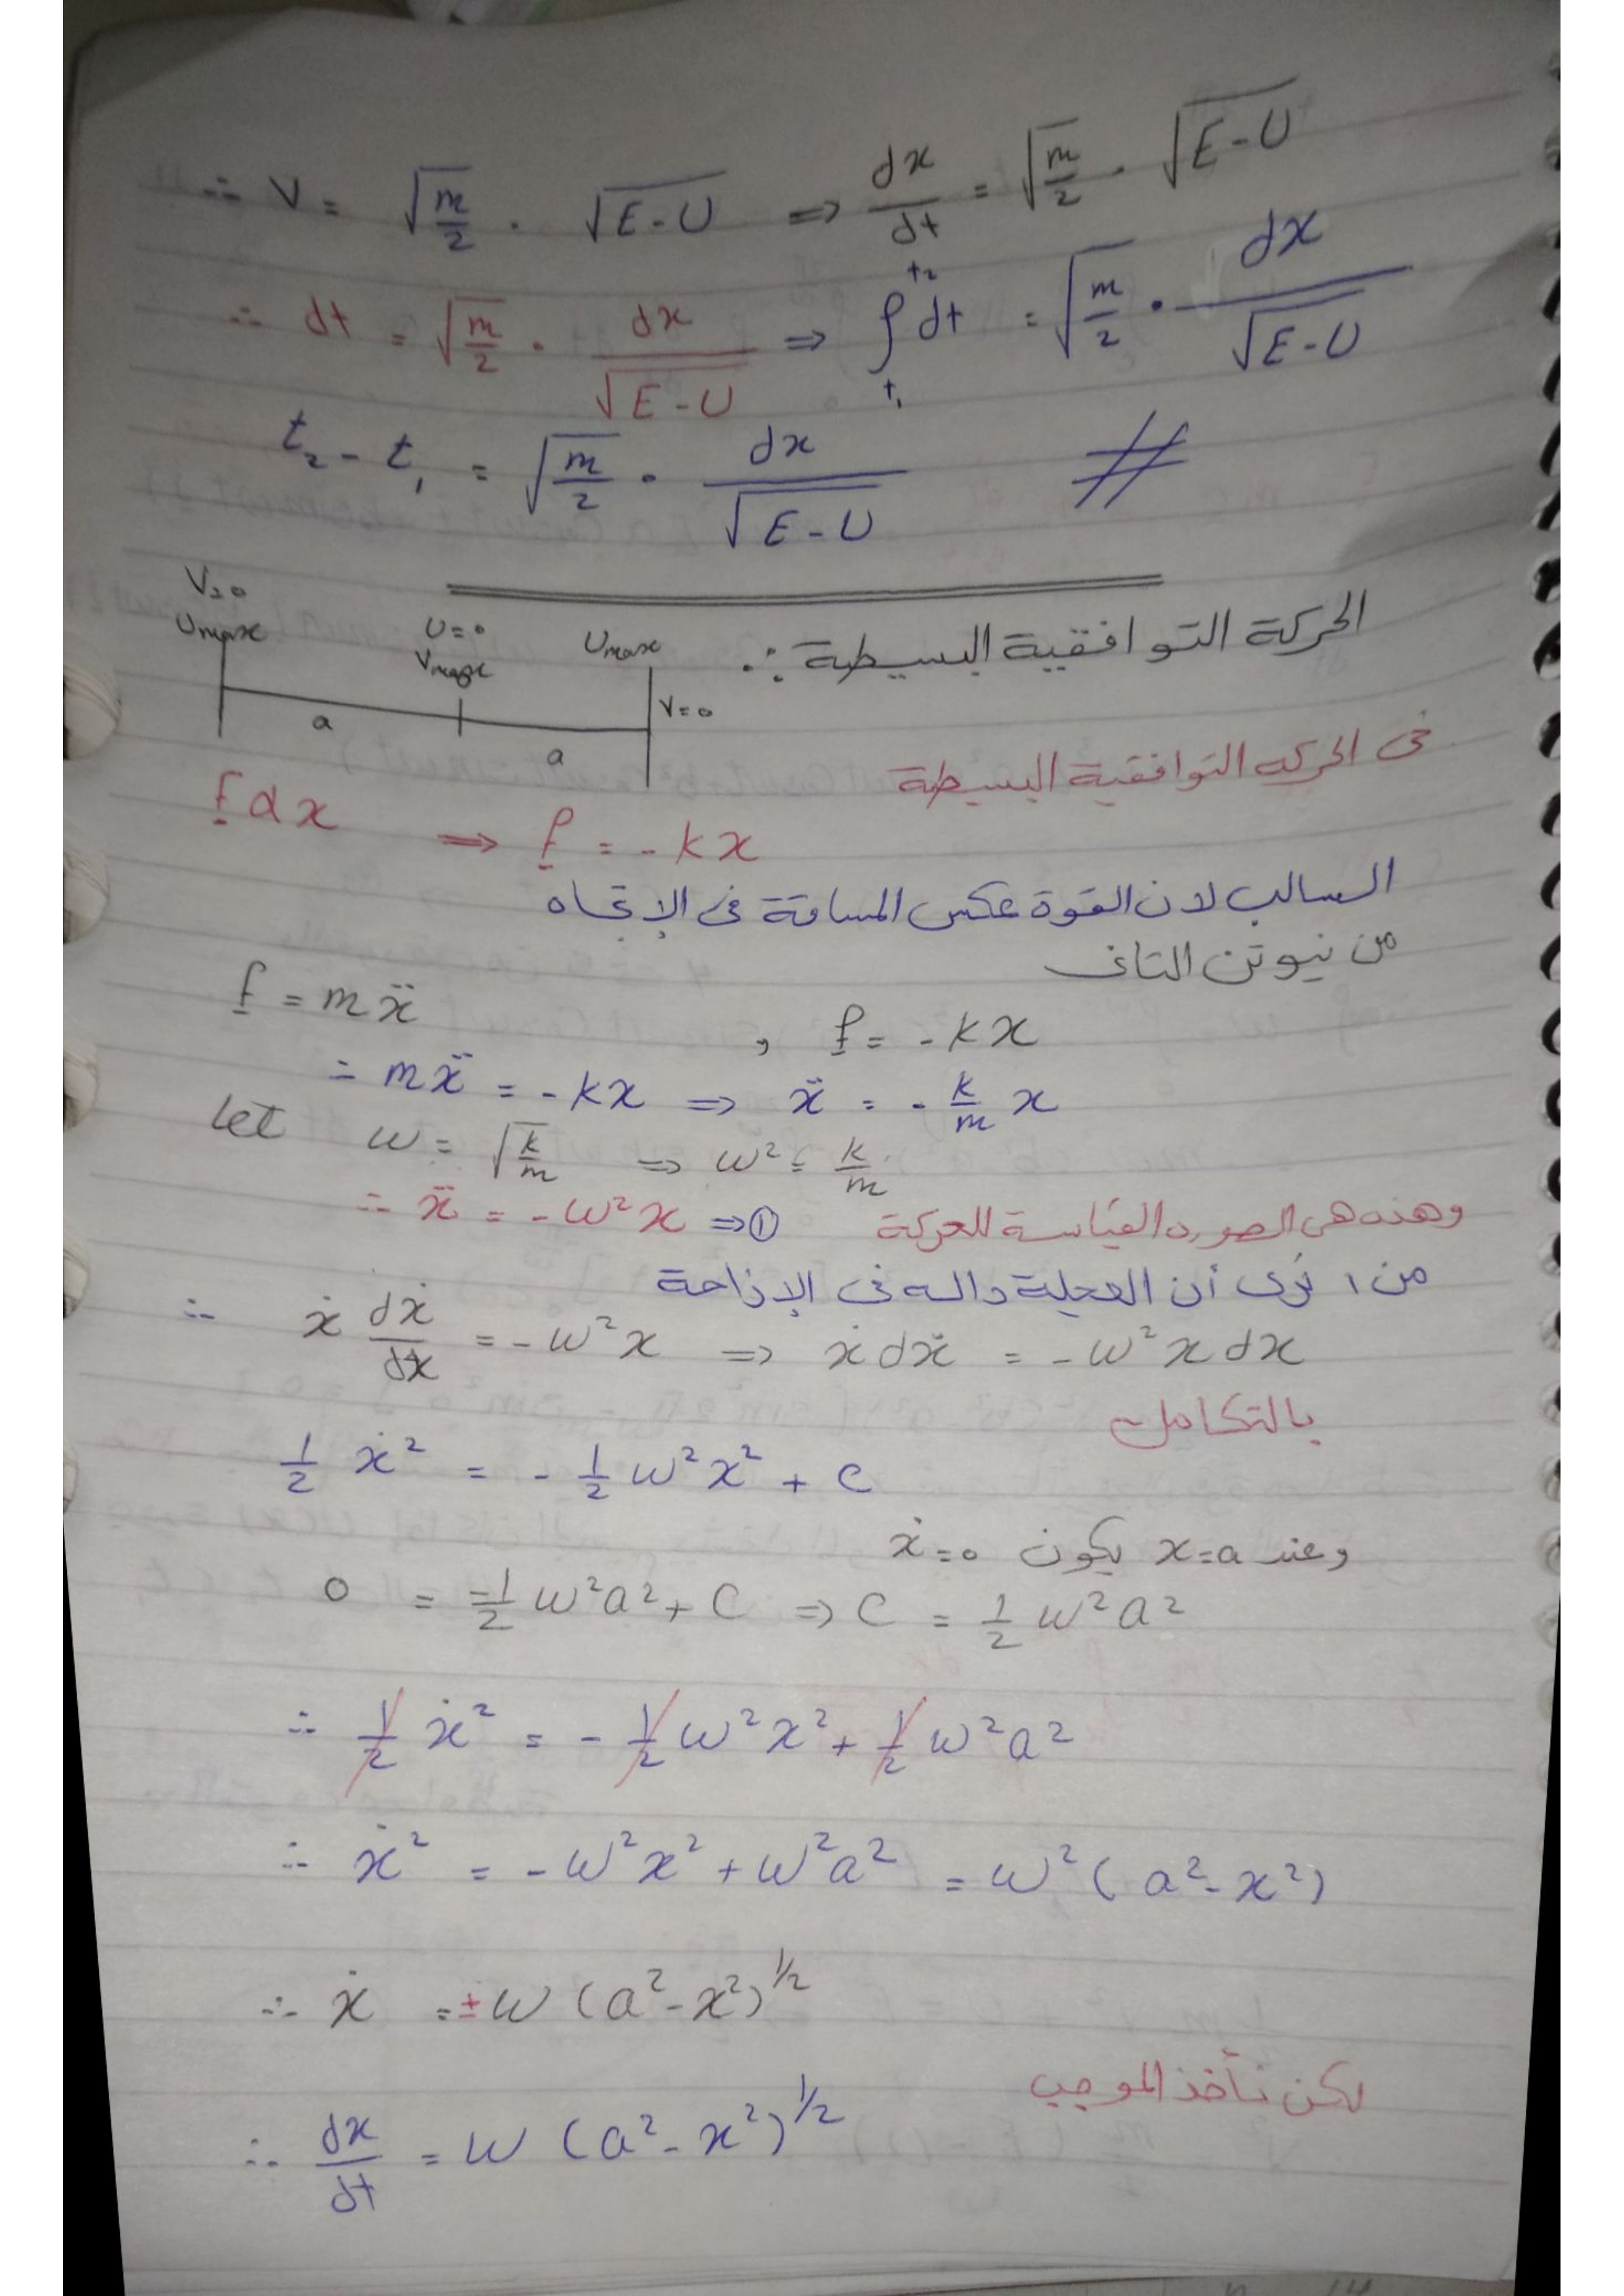 ∴ V = √(m/2) · √(E-U) ⇒ dx/dt = √(m/2) · √(E-U)
∴ dt = √(m/2) · dx/√(E-U) ⇒ ∫_{t₁}^{t₂} dt = √(m/2) · dx/√(E-U)
t₂ - t₁ = √(m/2) · dx/√(E-U) #
الحركة التوافقية البسيطة :.
V=0 Umax
U=0 Vmax
Umax V=0
a a
فى الحركه التوافقية البسيطة
f α x ⇒ f = -kx
السالب لان القوة عكس المسافة فى الإتجاه
من نيوتن التانى
f = mẍ , f = -kx
= mẍ = -kx ⇒ ẍ = -k/m x
let w = √(k/m) ⇒ w² = k/m
∴ ẍ = -w²x ⇒ ① وهذه هى الصوره القياسة للحركة
من ١ نرى أن العجلة داله فى الإزاحة
∴ ẋ dẋ/dx = -w²x ⇒ ẋdẋ = -w²x dx
بالتكامل
1/2 ẋ² = -1/2 w²x² + c
وعند x=a يكون ẋ=0
0 = -1/2 w²a² + C ⇒ C = 1/2 w²a²
∴ 1/2 ẋ² = -1/2 w²x² + 1/2 w²a²
∴ ẋ² = -w²x² + w²a² = w²(a²-x²)
∴ ẋ = ±w (a²-x²)^1/2
لكن نأخذ الموجب
∴ dx/dt = w (a²-x²)^1/2